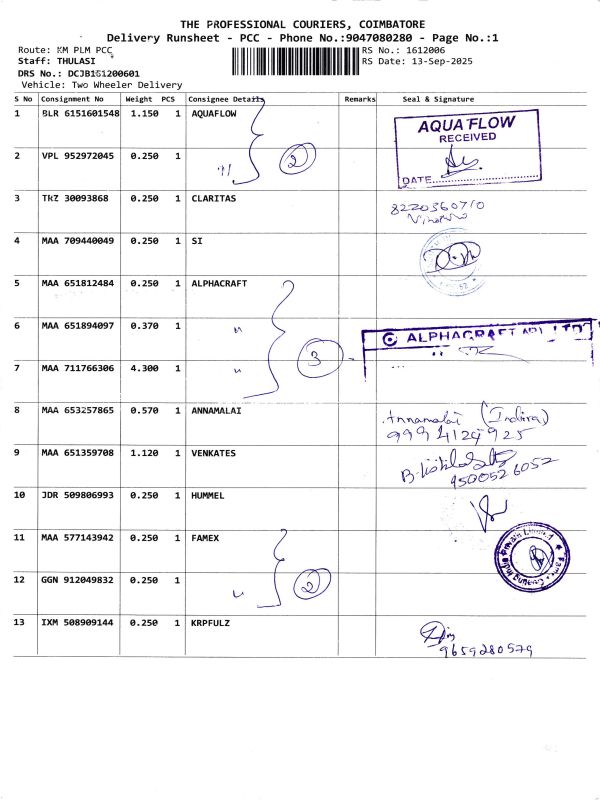 THE PROFESSIONAL COURIERS, COIMBATORE
Delivery Runsheet - PCC - Phone No.:9047080280 - Page No.:1
Route: KM PLM PCC
RS No.: 1612006
Staff: THULASI
RS Date: 13-Sep-2025
DRS No.: DCJB161200601
Vehicle: Two Wheeler Delivery
S No Consignment No Weight PCS Consignee Details Remarks Seal & Signature
1 BLR 6151601548 1.150 1 AQUAFLOW
AQUA FLOW
RECEIVED
DATE
2 VPL 952972045 0.250 1 " 2
3 TRZ 30093868 0.250 1 CLARITAS
8220360710
4 MAA 709440049 0.250 1 SI
5 MAA 651812484 0.250 1 ALPHACRAFT
6 MAA 651894097 0.370 1 "
ALPHACRAFT
7 MAA 711766306 4.300 1 " 3
8 MAA 653257865 0.570 1 ANNAMALAI
Annamalai (Indira)
9994124925
9 MAA 651359708 1.120 1 VENKATES
9500526052
10 JDR 509806993 0.250 1 HUMMEL
11 MAA 577143942 0.250 1 FAMEX
12 GGN 912049832 0.250 1 " 2
13 IXM 508909144 0.250 1 KRPFULZ
9659280579